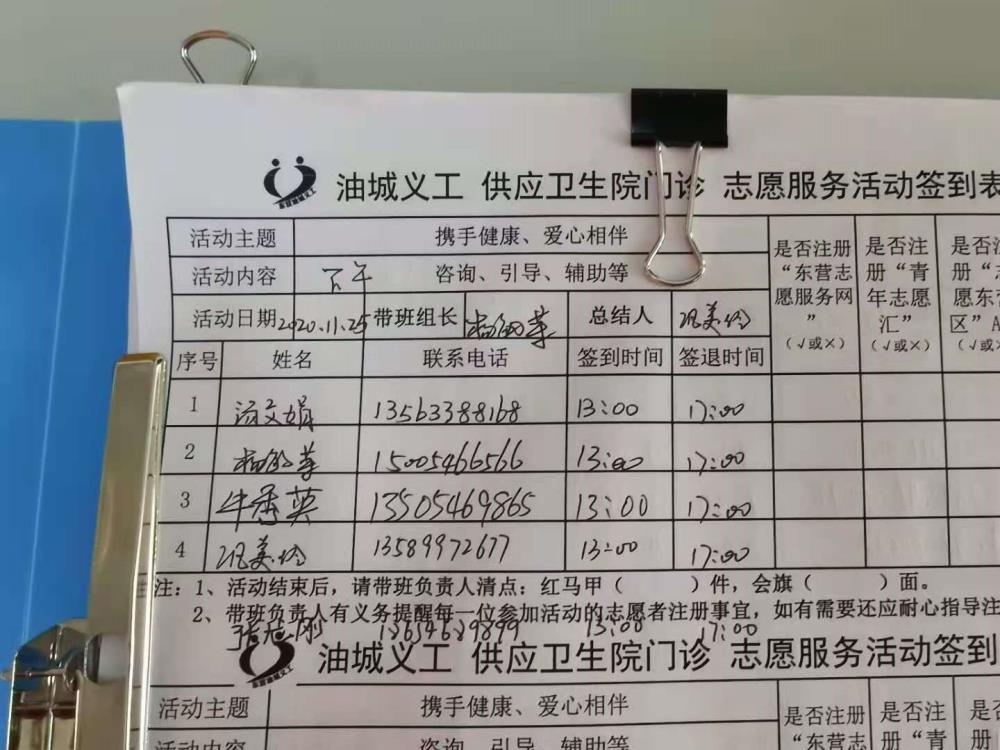 油城义工 供应卫生院门诊 志愿服务活动签到表
活动主题 携手健康、爱心相伴
活动内容 下午 咨询、引导、辅助等
是否注册“东营志愿服务网”(√或×)
是否注册“青年志愿汇”(√或×)
活动日期 2020.11.25 带班组长 总结人 巩美玲
序号 姓名 联系电话 签到时间 签退时间
1 文娟 13563388168 13:00 17:00
2 15005466566 13:00 17:00
3 牛秀英 13505469865 13:00 17:00
4 巩美玲 13589972677 13:00 17:00
注：1、活动结束后，请带班负责人清点：红马甲（ ）件，会旗（ ）面。
2、带班负责人有义务提醒每一位参加活动的志愿者注册事宜，如有需要还应耐心指导注
张旭刚 13:00 17:00
油城义工 供应卫生院门诊 志愿服务活动签到
活动主题 携手健康、爱心相伴
是否注册 是否注
活动内容 咨询、引导、辅助等
“东营志 册“青